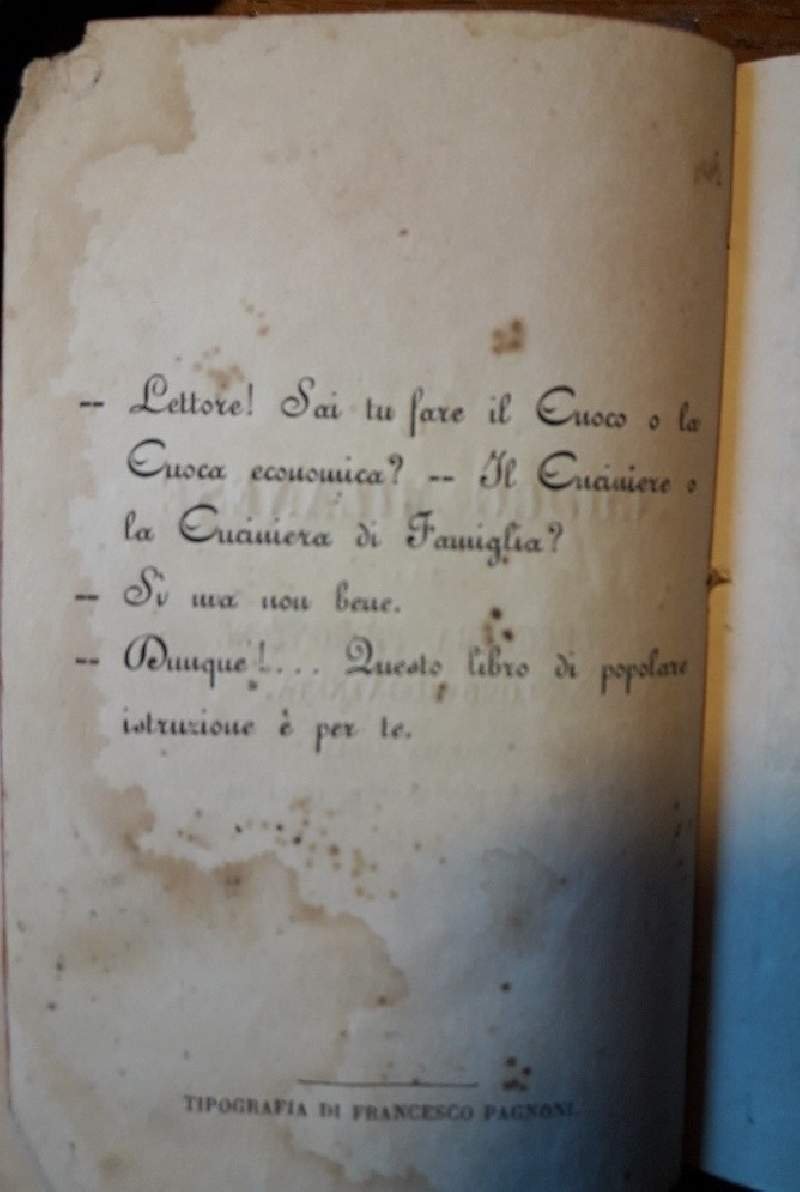 -- Lettore! Sai tu fare il Cuoco o la
Cuoca economica? -- Il Cuciniere o
la Cuciniera di Famiglia?
-- Sì ma non bene.
-- Dunque!... Questo libro di popolare
istruzione è per te.
TIPOGRAFIA DI FRANCESCO PAGNONI.